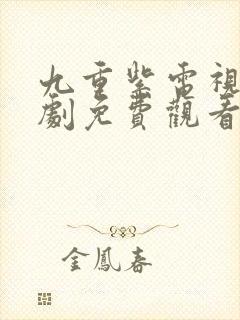 九重紫電視
劇免費觀看
金鳳春